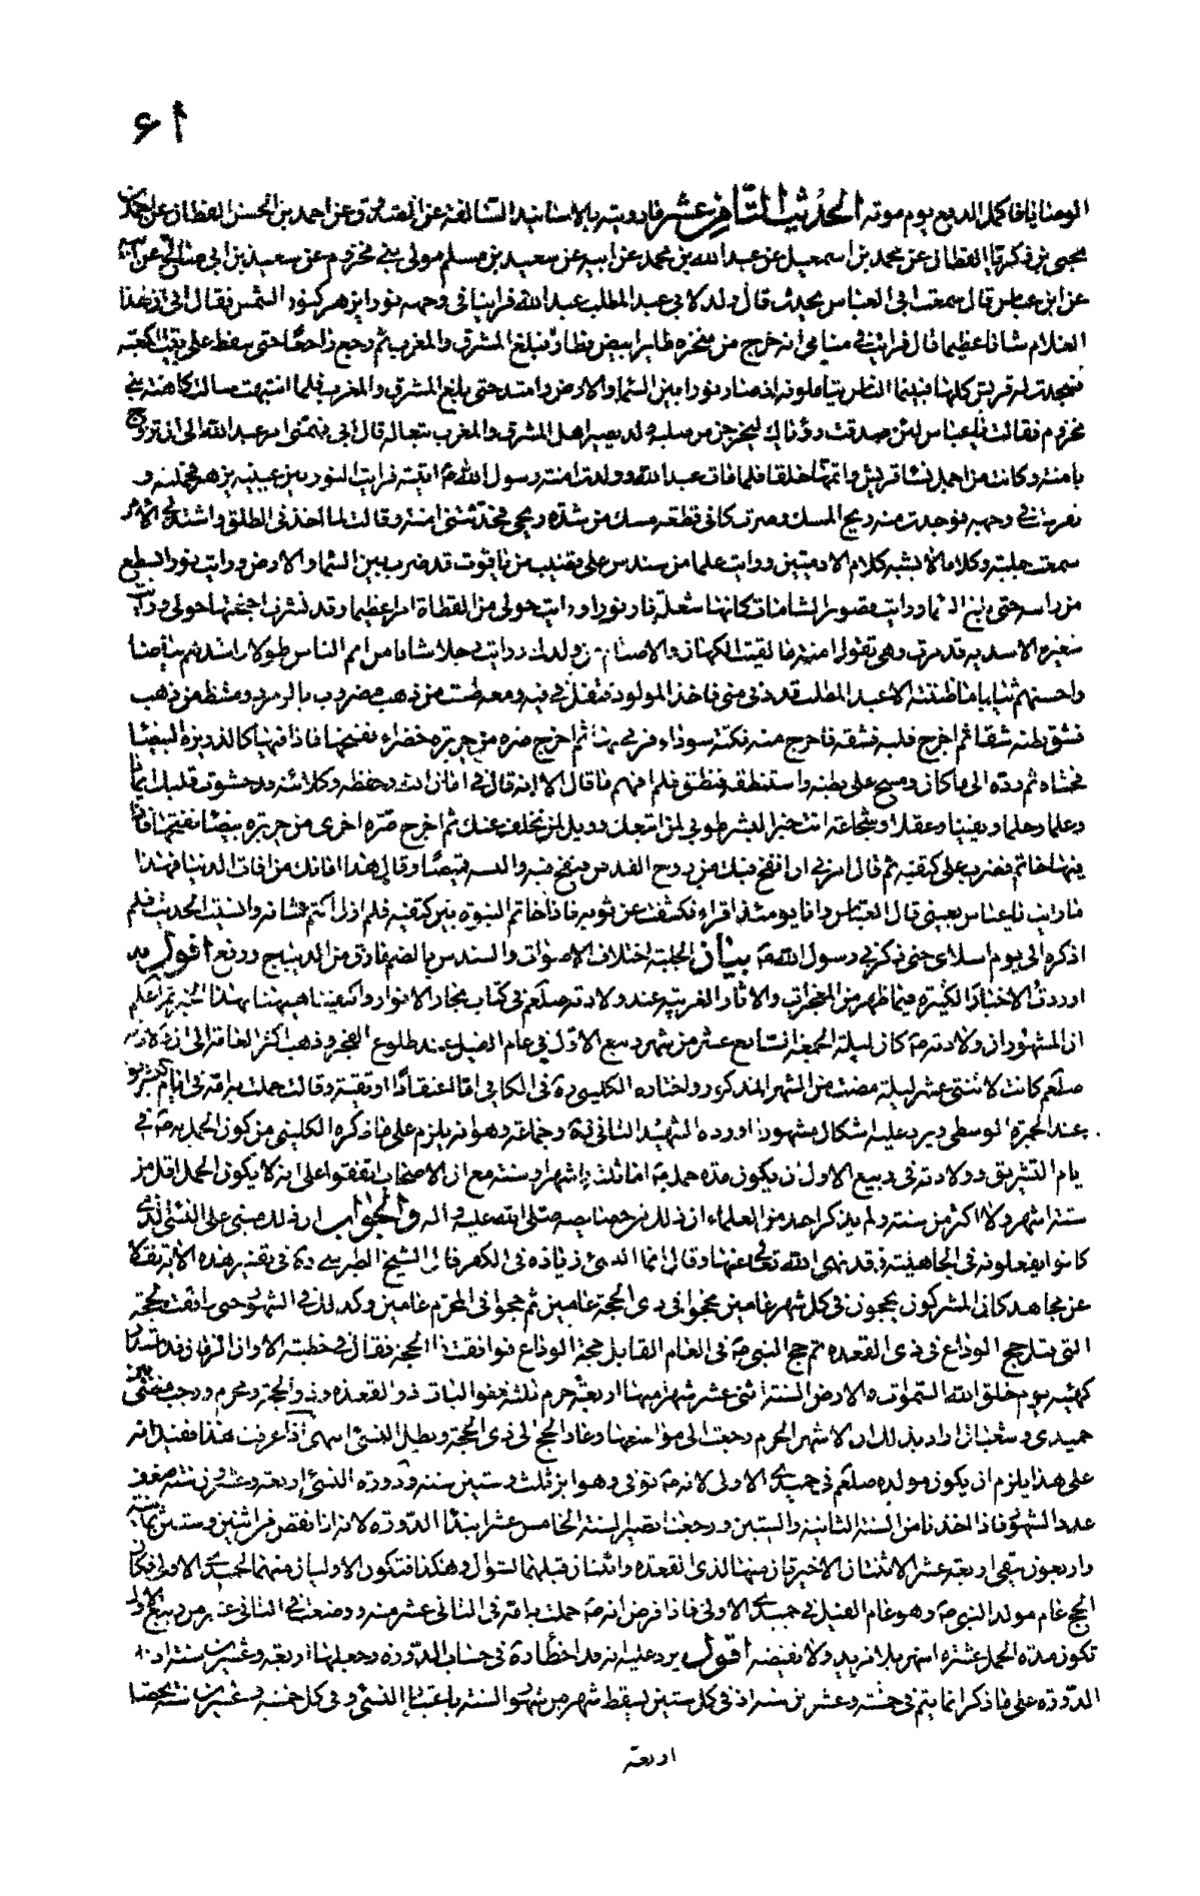 ٦١
الوصايا فاكمل الدين يوم موته الحديث الثامن عشر ما رويته بالاسانيد السالفة عن الصدوق عن احمد بن الحسن القطان عن احمد بن
يحيى بن زكريا القطان عن محمد بن اسمعيل عن عبد الله بن محمد عن ابيه عن سعيد بن مسلم مولى بني مخزوم عن سعيد بن ابي صالح عن ابيه
عن ابن عباس قال سمعت ابي العباس يحدث قال ولد لابي عبد المطلب عبد الله فراينا في وجهه نورا يزهر كنور الشمس فقال ابي ان لهذا
الغلام شانا عظيما قال فرايت في منامي انه خرج من منخره طاير ابيض فطار فبلغ المشرق والمغرب ثم رجع راجعا حتى سقط على بيت الكعبة
فسجدت له قريش كلها فبينما الناس يتاملونه اذ صار نورا بين السماء والارض وامتد حتى بلغ المشرق والمغرب فلما انتبهت سالت كاهنة بني
مخزوم فقالت يا عباس لئن صدقت رؤياك ليخرجن من صلبه ولد يصير اهل المشرق والمغرب تبعا له قال ابي فهمني امر عبد الله الى ان تزوج
بامنة وكانت من اجمل نساء قريش واتمها خلقا فلما مات عبد الله وولدت امنة رسول الله ص اتيته فرايت النور بين عينيه يزهر فحملته و
تفرست في وجهه فوجدت منه ريح المسك وصرت كاني قطعة مسك من شدة ريحي فحدثتني امنة وقالت لما اخذني الطلق واشتد بي الامر
سمعت جلبة وكلاما لا يشبه كلام الادميين ورايت علما من سندس على قضيب من ياقوت قد ضرب بين السماء والارض ورايت نورا يسطع
من راسه حتى بلغ السماء ورايت قصور الشامات كانها شعلة نار نورا ورايت حولي من القطاة امرا عظيما وقد نشرت اجنحتها حولي ورايت
شعيرة الاسدية قد مرت وهي تقول امنة ما لقيت الكهان والاصنام من ولدك ورايت رجلا شابا من اتم الناس طولا واشدهم بياضا
واحسنهم ثيابا ما ظننته الا عبد المطلب قد دنى مني فاخذ المولود فتفل في فيه ومعه طست من ذهب مضروب بالزمرد ومشط من ذهب
فشق بطنه شقا ثم اخرج قلبه فشقه فاخرج منه نكتة سوداء فرمى بها ثم اخرج صرة من حريرة خضراء ففتحها فاذا فيها كالذريرة البيضاء
فحشاه ثم رده الى ما كان ومسح على بطنه واستنطقه فنطق فلم افهم ما قال الا انه قال في امان الله وحفظه وكلائته وقد حشوت قلبك ايمانا
وعلما وحلما ويقينا وعقلا وشجاعة انت خير البشر طوبى لمن اتبعك وويل لمن تخلف عنك ثم اخرج صرة اخرى من حريرة بيضاء ففتحها فاذا
فيها خاتم فضرب على كتفيه ثم قال امرني ان انفخ فيك من روح القدس فنفخ فيه والبسه قميصا وقال هذا امانك من افات الدنيا فهذا
ما رايت يا عباس بعيني قال العباس وانا يومئذ اقرء فكشفت عن ثوبه فاذا خاتم النبوة بين كتفيه فلم ازل اكتم شانه وانسيت الحديث فلم
اذكره الى يوم اسلامي حتى ذكرني رسول الله ص بيان الجلبة اختلاف الاصوات والسندس بالضم مارق من الديباج ورفع اقول قد
اوردت الاخبار الكثيرة فيما ظهر من المعجزات والاثار الغريبة عند ولادته صلعم في كتاب بحار الانوار واكتفينا هيهنا بهذا الخبر ثم اعلم
ان المشهور ان ولادته ص كان ليلة الجمعة السابع عشر من شهر ربيع الاول في عام الفيل عند طلوع الفجر وذهب اكثر العامة الى ان ولادته
صلعم كانت لاثنتي عشر ليلة مضت من الشهر المذكور واختاره الكليني ره في الكافي اما اعتقادا او تقية وقالت حملت به امه في ايام التشريق
عند الجمرة الوسطى ويرد عليه اشكال مشهور اورده الشهيد الثاني ره وجماعة وهو انه يلزم على ما ذكره الكليني من كون الحمل به ص في
ايام التشريق وولادته في ربيع الاول ان يكون مدة حمله اما ثلثة اشهر او سنة مع ان الاصحاب اتفقوا على انه لا يكون الحمل اقل من
ستة اشهر ولا اكثر من سنة ولم يذكر احد من العلماء ان ذلك من خصايصه صلى الله عليه واله والجواب ان ذلك مبني على النسئ الذي
كانوا يفعلونه في الجاهلية وقد نهى الله تعالى عنها وقال انما النسئ زيادة في الكفر قال الشيخ الطبرسي ره في تفسير هذه الاية نقلا
عن مجاهد كان المشركون يحجون في كل شهر عامين فحجوا في ذي الحجة عامين ثم حجوا في المحرم عامين وكذلك في الشهور حتى وافقت الحجة
التي قبل حج الوداع في ذي القعدة ثم حج النبي ص في العام القابل حجة الوداع فوافقت ذا الحجة فقال في خطبته الا وان الزمان قد استدار
كهيئته يوم خلق الله السموات والارض السنة اثنى عشر شهرا منها اربعة حرم ثلثة متواليات ذو القعدة وذو الحجة ومحرم ورجب مضر الذي بين
جميدى وشعبان اراد بذلك ان الاشهر الحرم رجعت الى مواضعها وعاد الحج الى ذي الحجة وبطل النسئ انتهى اذا عرفت هذا فقيل انه
على هذا يلزم ان يكون مولده صلعم في جميدى الاولى لانه ص توفي وهو ابن ثلث وستين سنة ودورة النسئ اربعة وعشرون سنة ضعف
عدد الشهور فاذا اخذنا من السنة الثانية والستين ورجعنا تصير السنة الخامس عشر ابتداء الدورة لانه اذا نقص من اثنين وستين ثمانية
واربعون تبقى اربعة عشر الاثنتان الاخيرتان منها لذي القعدة واثنتان قبلها لشوال وهكذا فتكون الاوليان منها لجميدى الاولى فكان
الحج عام مولد النبي ص وهو عام الفيل في جميدى الاولى فاذا فرض انه ص حملت به امه في الثاني عشر منه ووضعت في الثاني عشر من ربيع الاول
تكون مدة الحمل عشرة اشهر بلا مزيد ولا نقيصة اقول يرد عليه انه قد اخطأ ره في حساب الدورة وجعلها اربعة وعشرين سنة اذ
الدورة على ما ذكر انما يتم في خمسة وعشرين سنة اذ في كل سنتين يسقط شهر من شهور السنة باعتبار النسئ وفي كل خمسة وعشرين سنة يحصل
اربعة